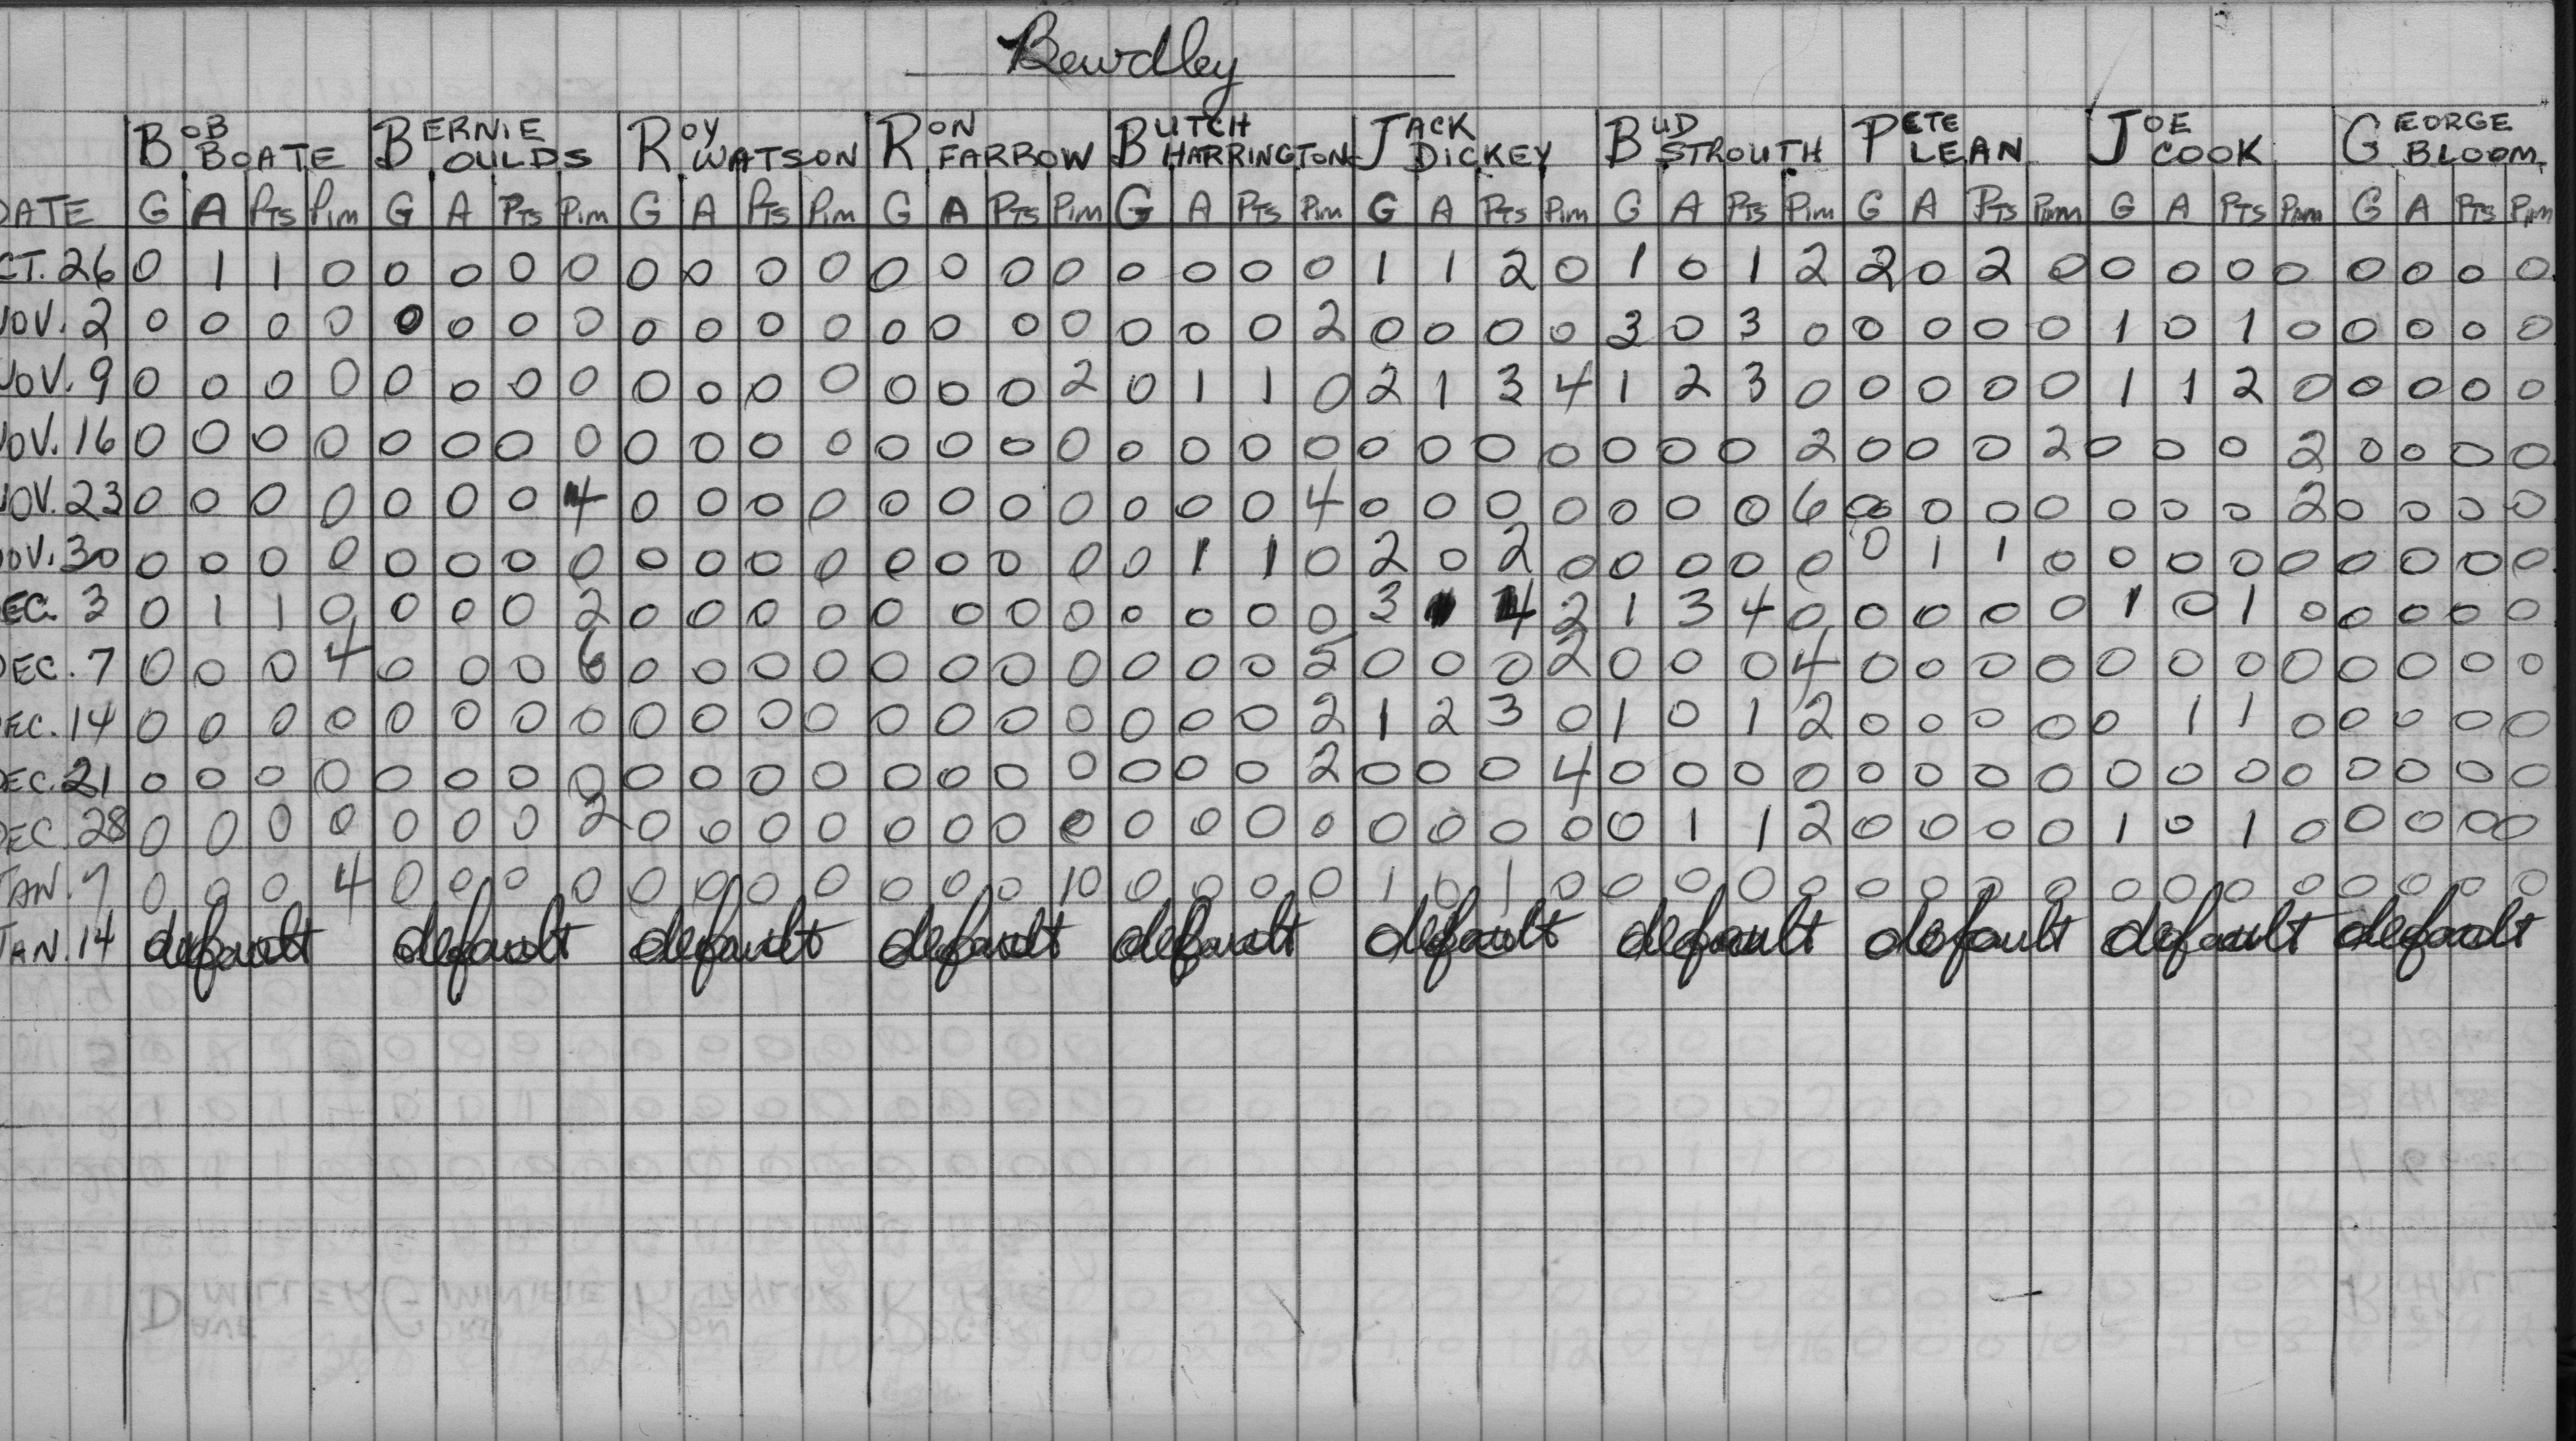 Bewdley
BOB BOATE BERNIE OULDS ROY WATSON RON FARROW BUTCH HARRINGTON JACK DICKEY BUD STROUTH PETE LEAN JOE COOK GEORGE BLOOM
DATE G A PTS Pim G A PTS Pim G A PTS Pim G A PTS Pim G A PTS Pim G A PTS Pim G A PTS Pim G A PTS Pim G A PTS Pim G A PTS Pim
CT. 26 0 1 1 0 0 0 0 0 0 0 0 0 0 0 0 0 0 0 0 0 1 1 2 0 1 0 1 2 2 0 2 0 0 0 0 0 0 0 0 0
NOV. 2 0 0 0 0 0 0 0 0 0 0 0 0 0 0 0 0 0 0 0 2 0 0 0 0 3 0 3 0 0 0 0 0 1 0 1 0 0 0 0 0
NOV. 9 0 0 0 0 0 0 0 0 0 0 0 0 0 0 0 2 0 1 1 0 2 1 3 4 1 2 3 0 0 0 0 0 1 1 2 0 0 0 0 0
OV. 16 0 0 0 0 0 0 0 0 0 0 0 0 0 0 0 0 0 0 0 0 0 0 0 0 0 0 0 2 0 0 0 2 0 0 0 2 0 0 0 0
NOV. 23 0 0 0 0 0 0 0 4 0 0 0 0 0 0 0 0 0 0 0 4 0 0 0 0 0 0 0 6 0 0 0 0 0 0 0 2 0 0 0 0
OV. 30 0 0 0 0 0 0 0 0 0 0 0 0 0 0 0 0 0 1 1 0 2 0 2 0 0 0 0 0 0 1 1 0 0 0 0 0 0 0 0 0
EC. 3 0 1 1 0 0 0 0 2 0 0 0 0 0 0 0 0 0 0 0 0 3 4 2 1 3 4 0 0 0 0 0 1 0 1 0 0 0 0 0
DEC. 7 0 0 0 4 0 0 0 6 0 0 0 0 0 0 0 0 0 0 0 5 0 0 0 2 0 0 0 4 0 0 0 0 0 0 0 0 0 0 0 0
EC. 14 0 0 0 0 0 0 0 0 0 0 0 0 0 0 0 0 0 0 0 2 1 2 3 0 1 0 1 2 0 0 0 0 0 1 1 0 0 0 0 0
EC. 21 0 0 0 0 0 0 0 0 0 0 0 0 0 0 0 0 0 0 0 2 0 0 0 4 0 0 0 0 0 0 0 0 0 0 0 0 0 0 0 0
DEC 28 0 0 0 0 0 0 0 2 0 0 0 0 0 0 0 0 0 0 0 0 0 0 0 0 0 1 1 2 0 0 0 0 1 0 1 0 0 0 0 0
JAN. 7 0 0 0 4 0 0 0 0 0 0 0 0 0 0 0 10 0 0 0 0 1 0 1 0 0 0 0 0 0 0 0 0 0 0 0 0 0 0 0 0
JAN. 14 default default default default default default default default default default